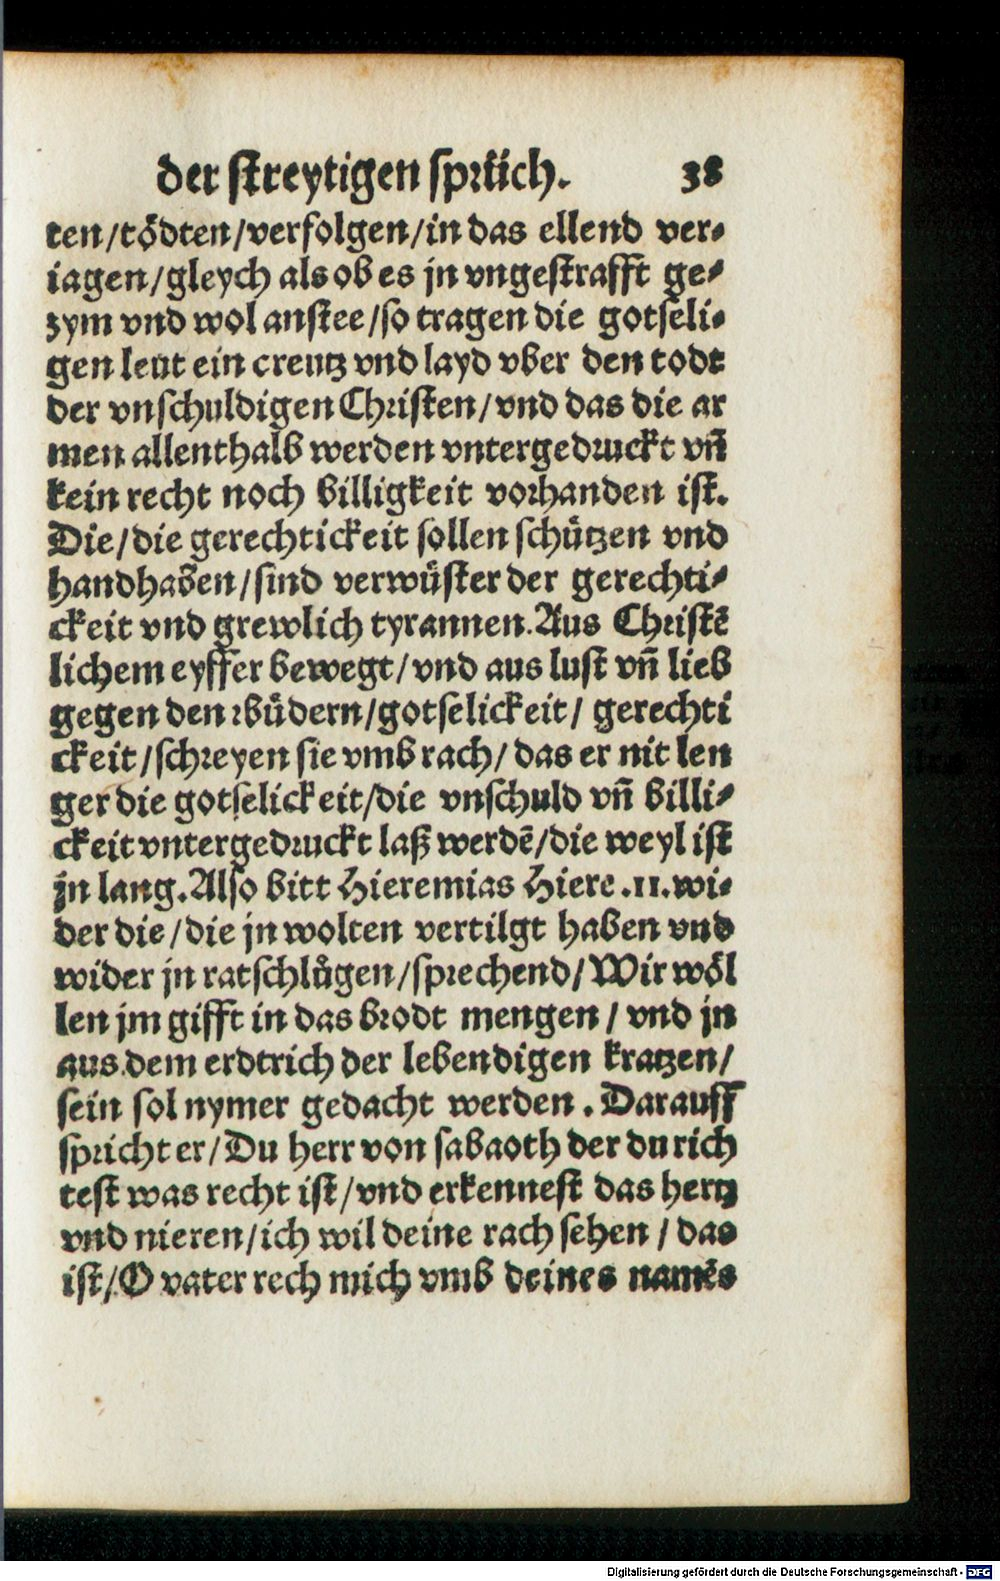 der streytigen sprüch. 38
ten/tödten/verfolgen/in das ellend ver-
iagen/gleych als ob es jn vngestrafft ge-
zym vnd wol anstee/so tragen die gotseli-
gen leut ein creutz vnd layd vber den todt
der vnschuldigen Christen/vnd das die ar
men allenthalb werden vntergedruckt vñ
kein recht noch billigkeit vorhanden ist.
Die/die gerechtickeit sollen schützen vnd
handhaben/sind verwüster der gerechti-
ckeit vnd grewlich tyrannen. Aus Christē
lichem eyffer bewegt/vnd aus lust vñ lieb
gegen den rbüdern/gotselickeit/ gerechti
ckeit/schreyen sie vmb rach/das er nit len
ger die gotselickeit/die vnschuld vñ billi-
ckeit vntergedruckt laß werdē/die weyl ist
jn lang. Also bitt Hieremias Hiere .11. wi-
der die/die jn wolten vertilgt haben vnd
wider jn ratschlügen/sprechend/Wir wöl
len jm gifft in das brodt mengen / vnd jn
aus dem erdtrich der lebendigen kratzen/
sein sol nymer gedacht werden . Darauff
spricht er/Du herr von sabaoth der du rich
test was recht ist/vnd erkennest das hertz
vnd nieren/ich wil deine rach sehen / das
ist/O vater rech mich vmb deines namēs
Digitalisierung gefördert durch die Deutsche Forschungsgemeinschaft - DFG